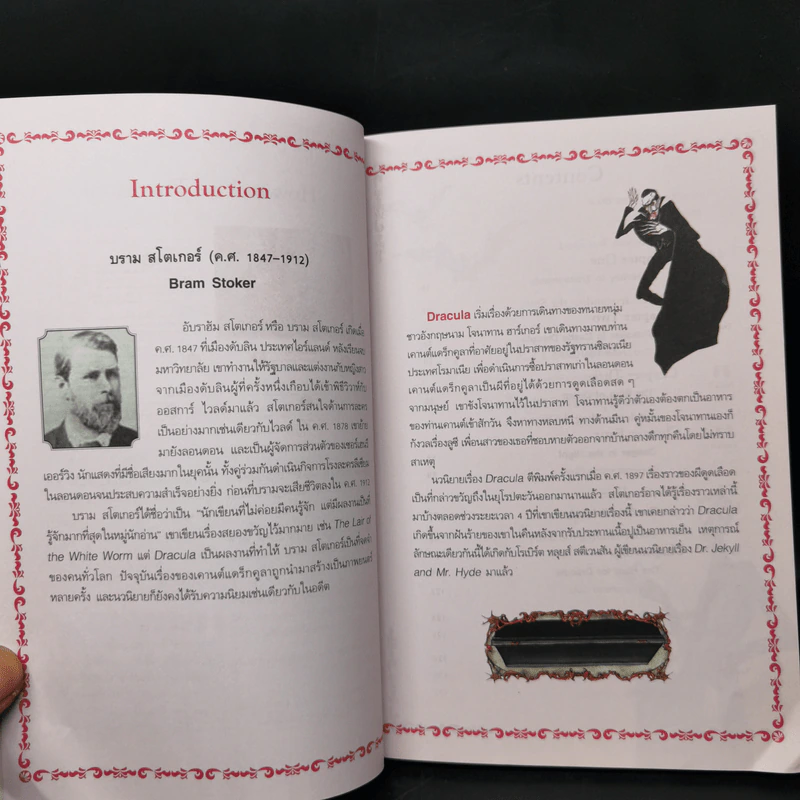 Introduction
บราม สโตเกอร์ (ค.ศ. 1847–1912)
Bram Stoker
อับราฮัม สโตเกอร์ หรือ บราม สโตเกอร์ เกิดเมื่อ
ค.ศ. 1847 ที่เมืองดับลิน ประเทศไอร์แลนด์ หลังเรียนจบ
มหาวิทยาลัย เขาทำงานให้รัฐบาลและแต่งงานกับหญิงสาว
จากเมืองดับลินผู้ที่ครั้งหนึ่งเกือบได้เข้าพิธีวิวาห์กับ
ออสการ์ ไวลด์มาแล้ว สโตเกอร์สนใจด้านการละคร
เป็นอย่างมากเช่นเดียวกับไวลด์ ใน ค.ศ. 1878 เขาย้าย
มายังลอนดอน และเป็นผู้จัดการส่วนตัวของเซอร์เฮนรี
เออร์วิง นักแสดงที่มีชื่อเสียงมากในยุคนั้น ทั้งคู่ร่วมกันดำเนินกิจการโรงละครไลเซียม
ในลอนดอนจนประสบความสำเร็จอย่างยิ่ง ก่อนที่บรามจะเสียชีวิตลงใน ค.ศ. 1912
บราม สโตเกอร์ได้ชื่อว่าเป็น “นักเขียนที่ไม่ค่อยมีคนรู้จัก แต่มีผลงานเป็นที่
รู้จักมากที่สุดในหมู่นักอ่าน” เขาเขียนเรื่องสยองขวัญไว้มากมาย เช่น The Lair of
the White Worm แต่ Dracula เป็นผลงานที่ทำให้ บราม สโตเกอร์เป็นที่จดจำ
ของคนทั่วโลก ปัจจุบันเรื่องของเคานต์แดร็กคูลาถูกนำมาสร้างเป็นภาพยนตร์
หลายครั้ง และนวนิยายก็ยังคงได้รับความนิยมเช่นเดียวกับในอดีต
Dracula เริ่มเรื่องด้วยการเดินทางของทนายหนุ่ม
ชาวอังกฤษนาม โจนาทาน ฮาร์เกอร์ เขาเดินทางมาพบท่าน
เคานต์แดร็กคูลาที่อาศัยอยู่ในปราสาทของรัฐทรานซิลเวเนีย
ประเทศโรมาเนีย เพื่อดำเนินการซื้อปราสาทเก่าในลอนดอน
เคานต์แดร็กคูลาเป็นผีที่อยู่ได้ด้วยการดูดเลือดสด ๆ
จากมนุษย์ เขาขังโจนาทานไว้ในปราสาท โจนาทานรู้ดีว่าตัวเองต้องตกเป็นอาหาร
ของท่านเคานต์เข้าสักวัน จึงหาทางหลบหนี ทางด้านมีนา คู่หมั้นของโจนาทานเองก็
กังวลเรื่องลูซี เพื่อนสาวของเธอที่ชอบหายตัวออกจากบ้านกลางดึกทุกคืนโดยไม่ทราบ
สาเหตุ
นวนิยายเรื่อง Dracula ตีพิมพ์ครั้งแรกเมื่อ ค.ศ. 1897 เรื่องราวของผีดูดเลือด
เป็นที่กล่าวขวัญถึงในยุโรปตะวันออกมานานแล้ว สโตเกอร์อาจได้รู้เรื่องราวเหล่านี้
มาบ้างตลอดช่วงระยะเวลา 4 ปีที่เขาเขียนนวนิยายเรื่องนี้ เขาเคยกล่าวว่า Dracula
เกิดขึ้นจากฝันร้ายของเขาในคืนหลังจากรับประทานเนื้อปูเป็นอาหารเย็น เหตุการณ์
ลักษณะเดียวกันนี้ได้เกิดกับโรเบิร์ต หลุยส์ สตีเวนสัน ผู้เขียนนวนิยายเรื่อง Dr. Jekyll
and Mr. Hyde มาแล้ว